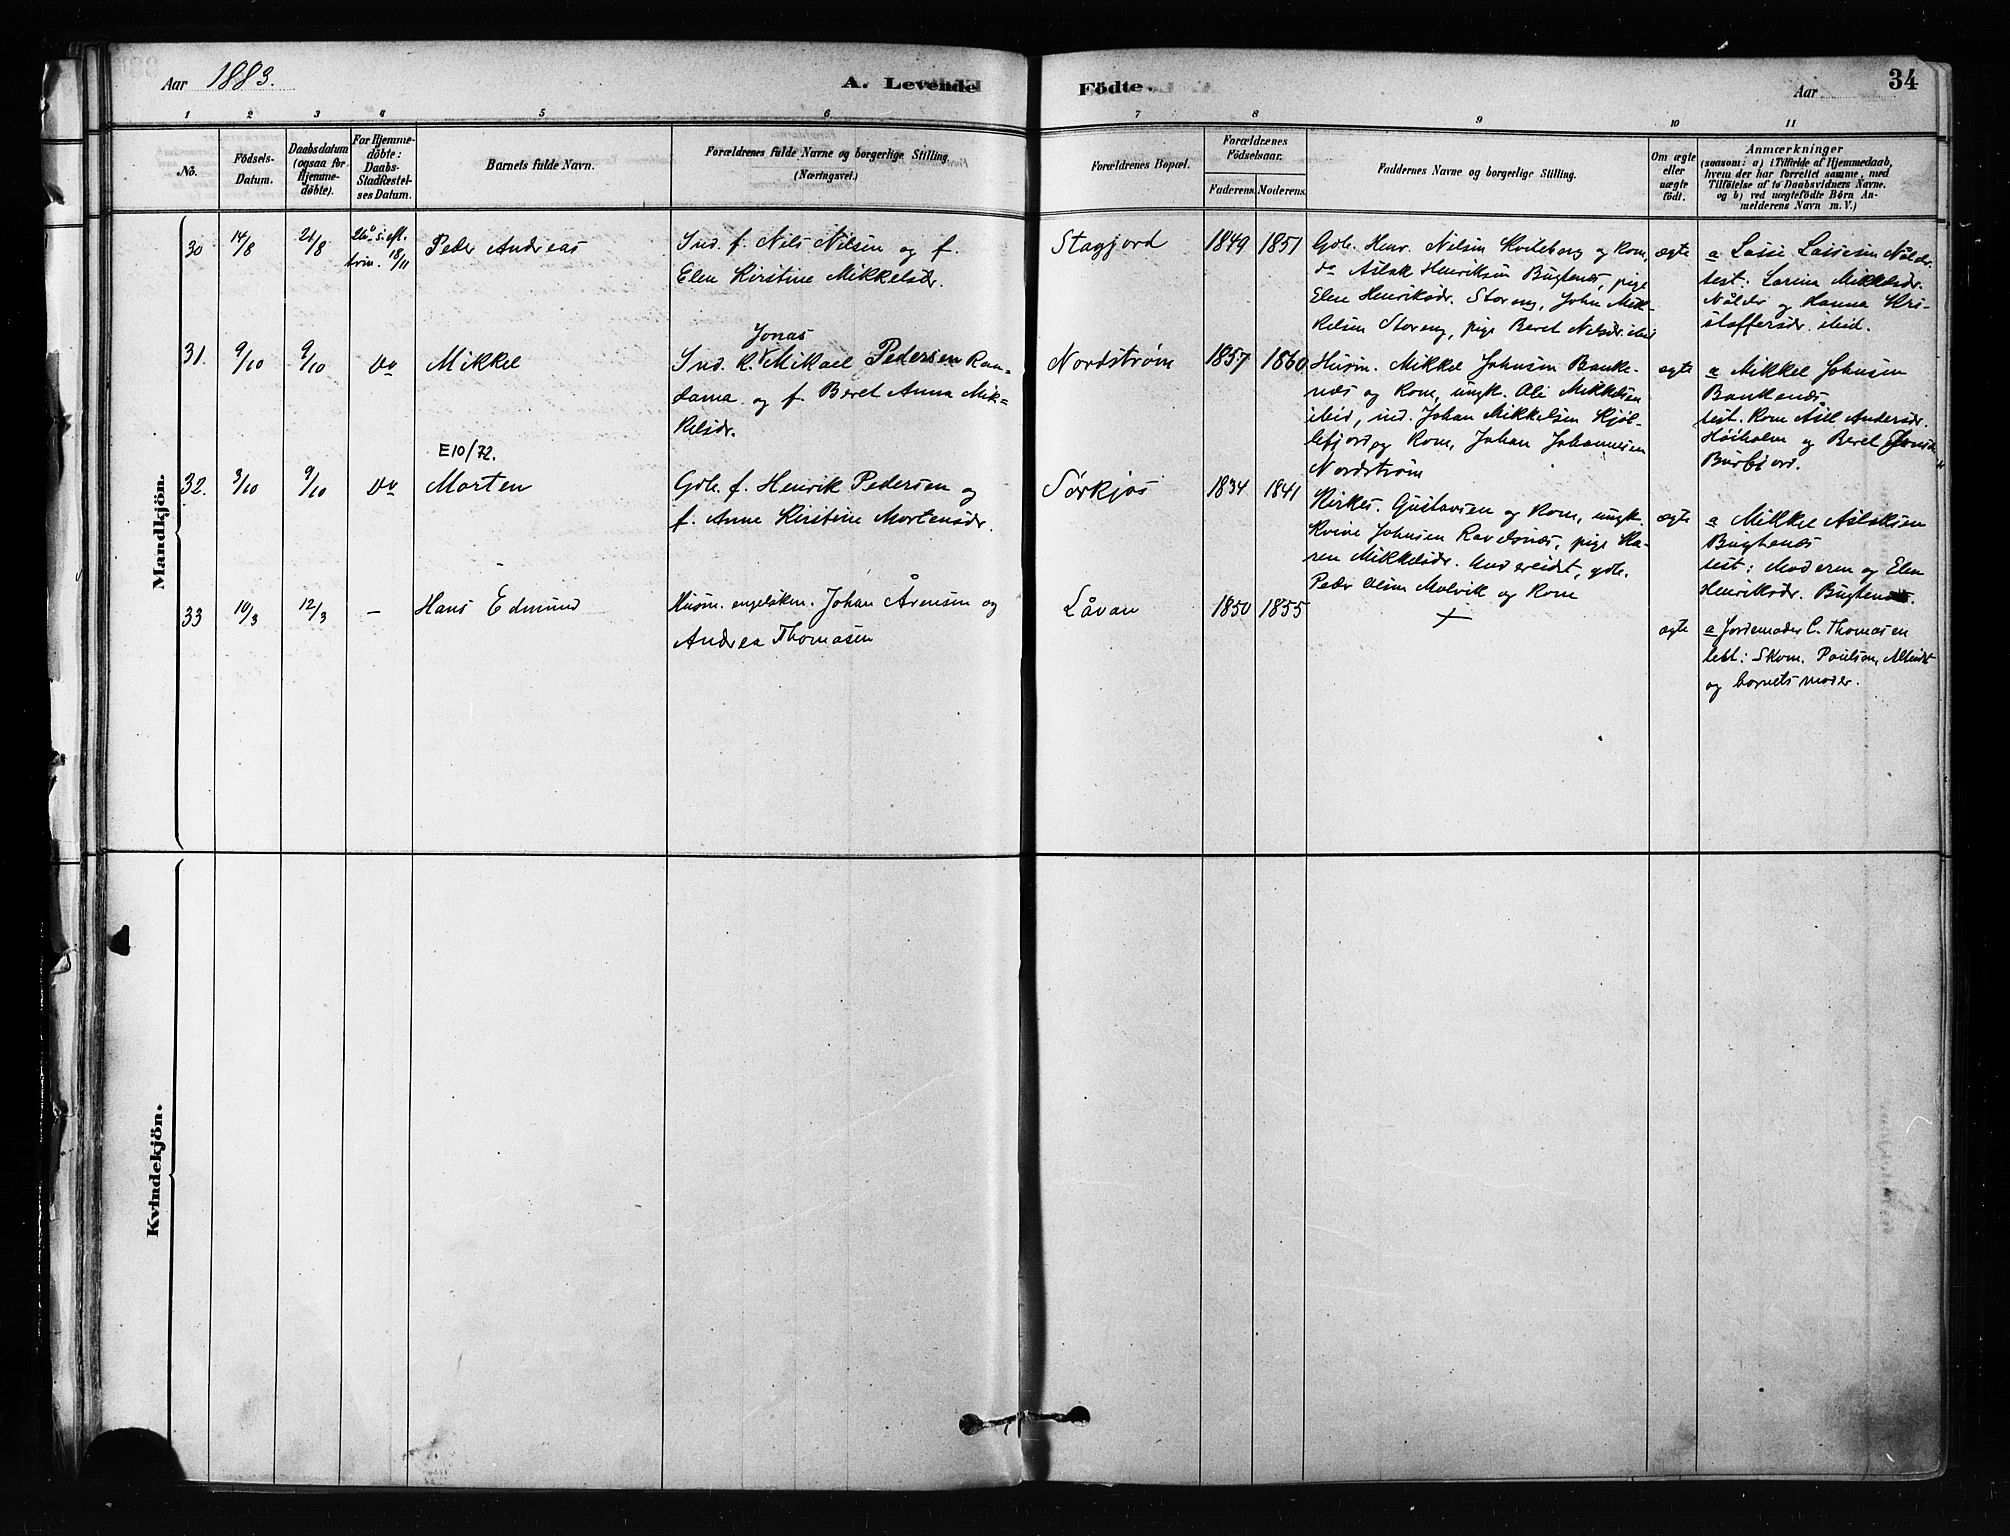 Aar 1883.
A. Levende Födte.
Aar
34
1 2 3 4 5 6 7 8 9 10 11
No.
Födsels-
Datum.
Daabsdatum
(ogsaa for
Hjemme-
döbte).
For Hjemme-
döbte:
Daabs-
Stadfæstel-
ses Datum.
Barnets fulde Navn.
Forældrenes fulde Navne og borgerlige Stilling.
(Næringsvei.)
Forældrenes Bopæl.
Forældrenes
Födselsaar.
Faderens. Moderens.
Faddernes Navne og borgerlige Stilling.
Om ægte
eller
uægte
födt.
Anmærkninger
(saasom: a) i Tilfælde af Hjemmedaab,
hvem der har forrettet samme, med
Tilföielse af to Daabsvidners Navne.
og b) ved uægtefödte Börn An-
melderens Navn m. V.)
Mandkjön.
30 14/8 21/8 26de s. eft. trin. 18/11
Peder Andreas
Ind. f. Nils Nilsen og f.
Elen Kirstine Mikkelsdr.
Stagjord
1849 1851
Gdb. Henr. Nilsen Kviteberg og Kone,
do Aslak Henriksen Bugtenæs, pige
Elen Henriksdr. Storeng, John Mik-
kelsen Storeng, pige Beret Nilsdr. ibid
ægte
a Lasse Lassesen
test: Larina Mikkelsdr.
og Hanna Kri-
stoffersdr. ibid.
31. 9/10 9/10 Do
Mikkel
Jonas
Ind. K. Mikael Pedersen Ran-
dama og f. Beret Anna Mik-
kelsdr.
Nordstrøm
1857 1860
Husm. Mikkel Johnsen Banke-
næs og Kone, ungk. Ole Mikkelsen
ibid, ind. Johan Mikkelsen Kjøl-
lefjord og Kone, Johan Johannesen
Nordstrøm
ægte
a Mikkel Johnsen
Bankenæs
test. Kone Andersdr.
Høiholm og Beret
Burfjord.
E10/72.
32. 3/10 9/10 Do
Morten
Gdb. f. Henrik Pedersen og
f. Anne Kirstine Mortensdr.
Sørkjos
1834 1841
Kirkes. Gustavsen og Kone, ungk.
Johnsen Ravelsnæs, pige Ka-
ren Mikkelsdr. Undereidet, gdb.
Peder Olsen Molvik og Kone
ægte
a Mikkel Aslaksen
Bugtenæs
test: Moderen og Elen
Henriksdr. Bugtenæs.
33 10/3 12/3 –
Hans Edmund
Husm. engelskm. Johan Årensen og
Andrea Thomasen
Låvan
1850 1855
+
ægte
a Jordemoder C. Thomasen
test: Skom. Paulsen,
og barnets moder.
Kvindekjön.